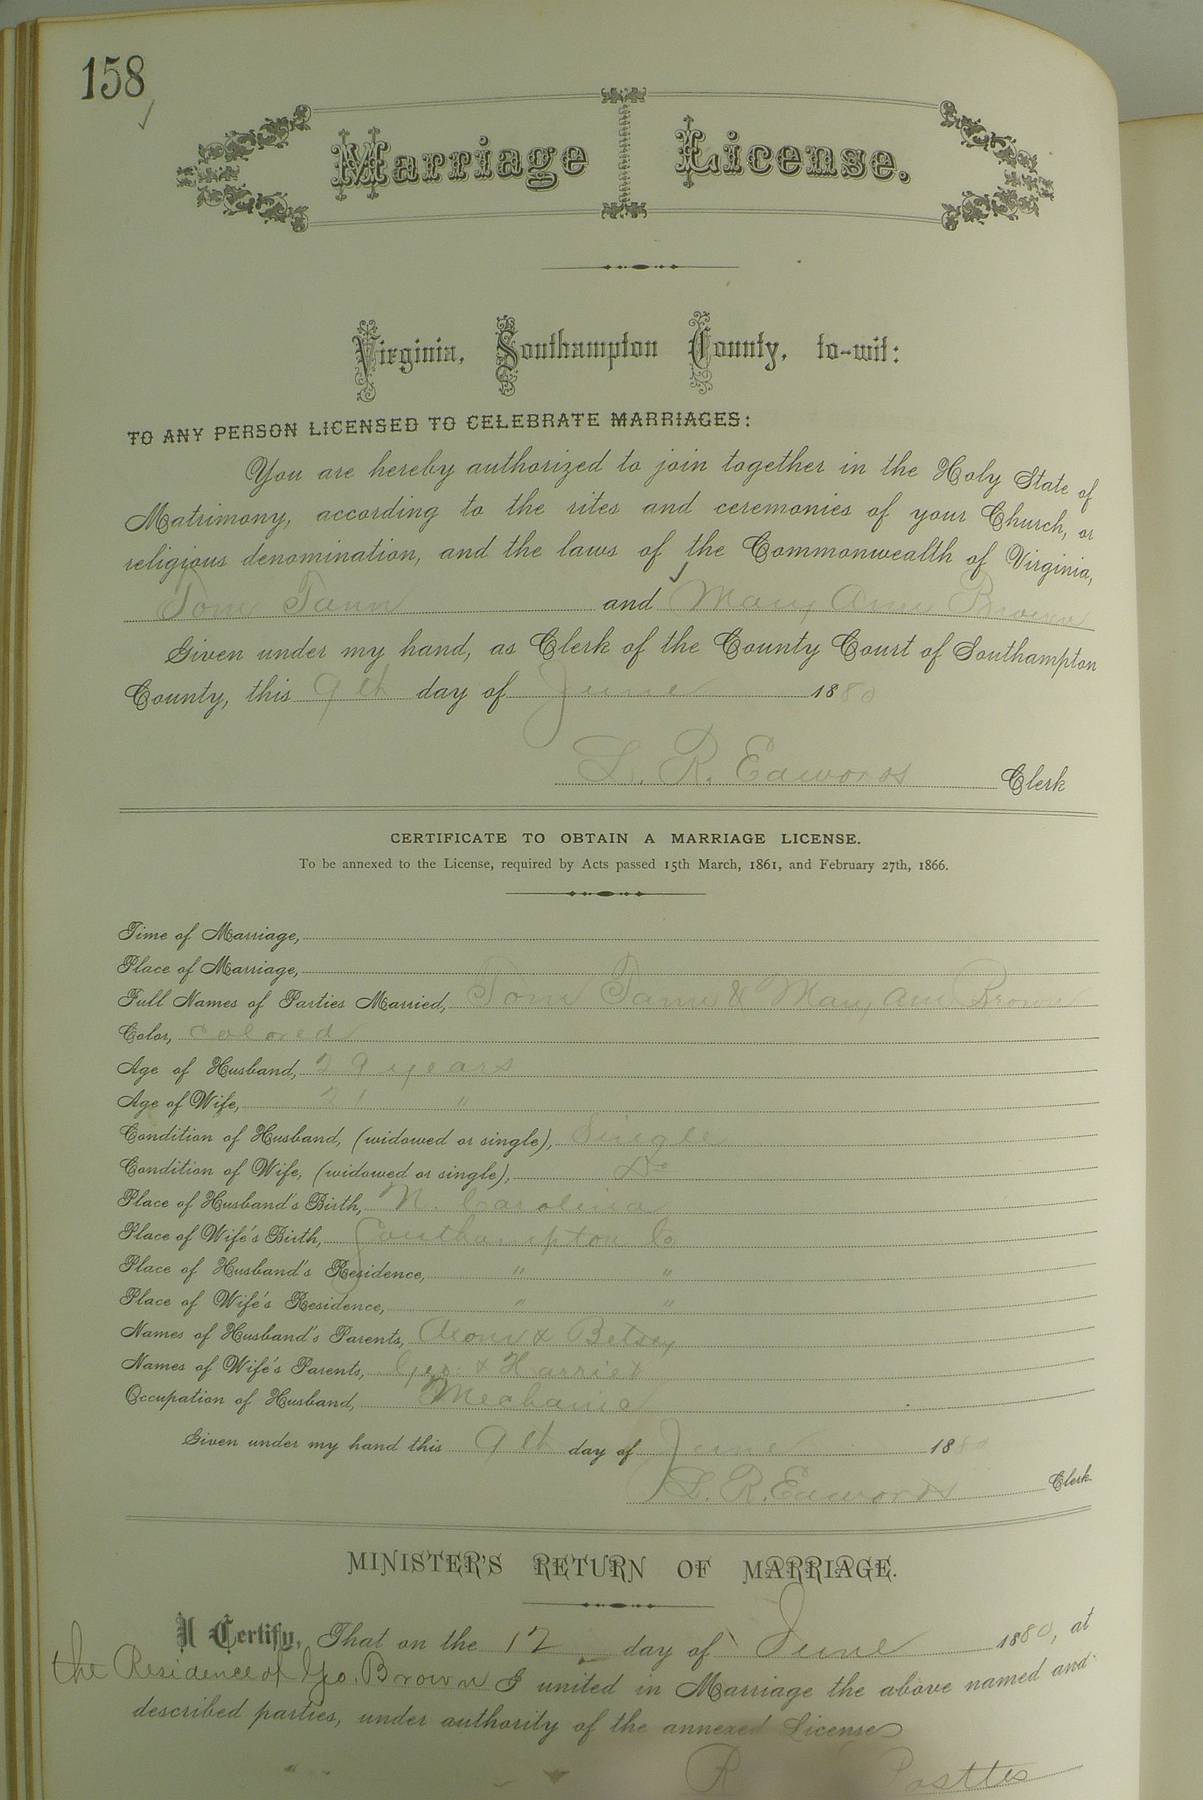 158
Marriage License.
Virginia, Southampton County, to-wit:
TO ANY PERSON LICENSED TO CELEBRATE MARRIAGES:
You are hereby authorized to join together in the Holy State of
Matrimony, according to the rites and ceremonies of your Church, or
religious denomination, and the laws of the Commonwealth of Virginia,
Tom Tann and Mary Ann Brown
Given under my hand, as Clerk of the County Court of Southampton
County, this 9th day of June 1880
L. R. Edwards Clerk
CERTIFICATE TO OBTAIN A MARRIAGE LICENSE.
To be annexed to the License, required by Acts passed 15th March, 1861, and February 27th, 1866.
Time of Marriage,
Place of Marriage,
Full Names of Parties Married, Tom Tann & Mary Ann Brown
Color, colored
Age of Husband, 29 years
Age of Wife, 21 "
Condition of Husband, (widowed or single), Single
Condition of Wife, (widowed or single), Do
Place of Husband's Birth, N. Carolina
Place of Wife's Birth, Southampton Co
Place of Husband's Residence, " "
Place of Wife's Residence, " "
Names of Husband's Parents, & Betsey
Names of Wife's Parents, Geo. & Harriet
Occupation of Husband, Mechanic
Given under my hand this 9th day of June 1880
L. R. Edwards Clerk.
MINISTER'S RETURN OF MARRIAGE.
I Certify, That on the 12 day of June 1880, at
the Residence of Geo. Brown I united in Marriage the above named and
described parties, under authority of the annexed License
R